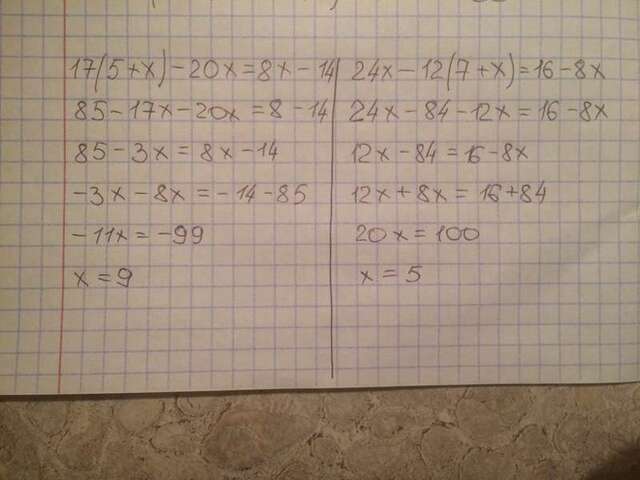 17(5+x)-20x=8x-14
85-17x-20x=8-14
85-3x=8x-14
-3x-8x=-14-85
-11x=-99
x=9
24x-12(7+x)=16-8x
24x-84-12x=16-8x
12x-84=16-8x
12x+8x=16+84
20x=100
x=5